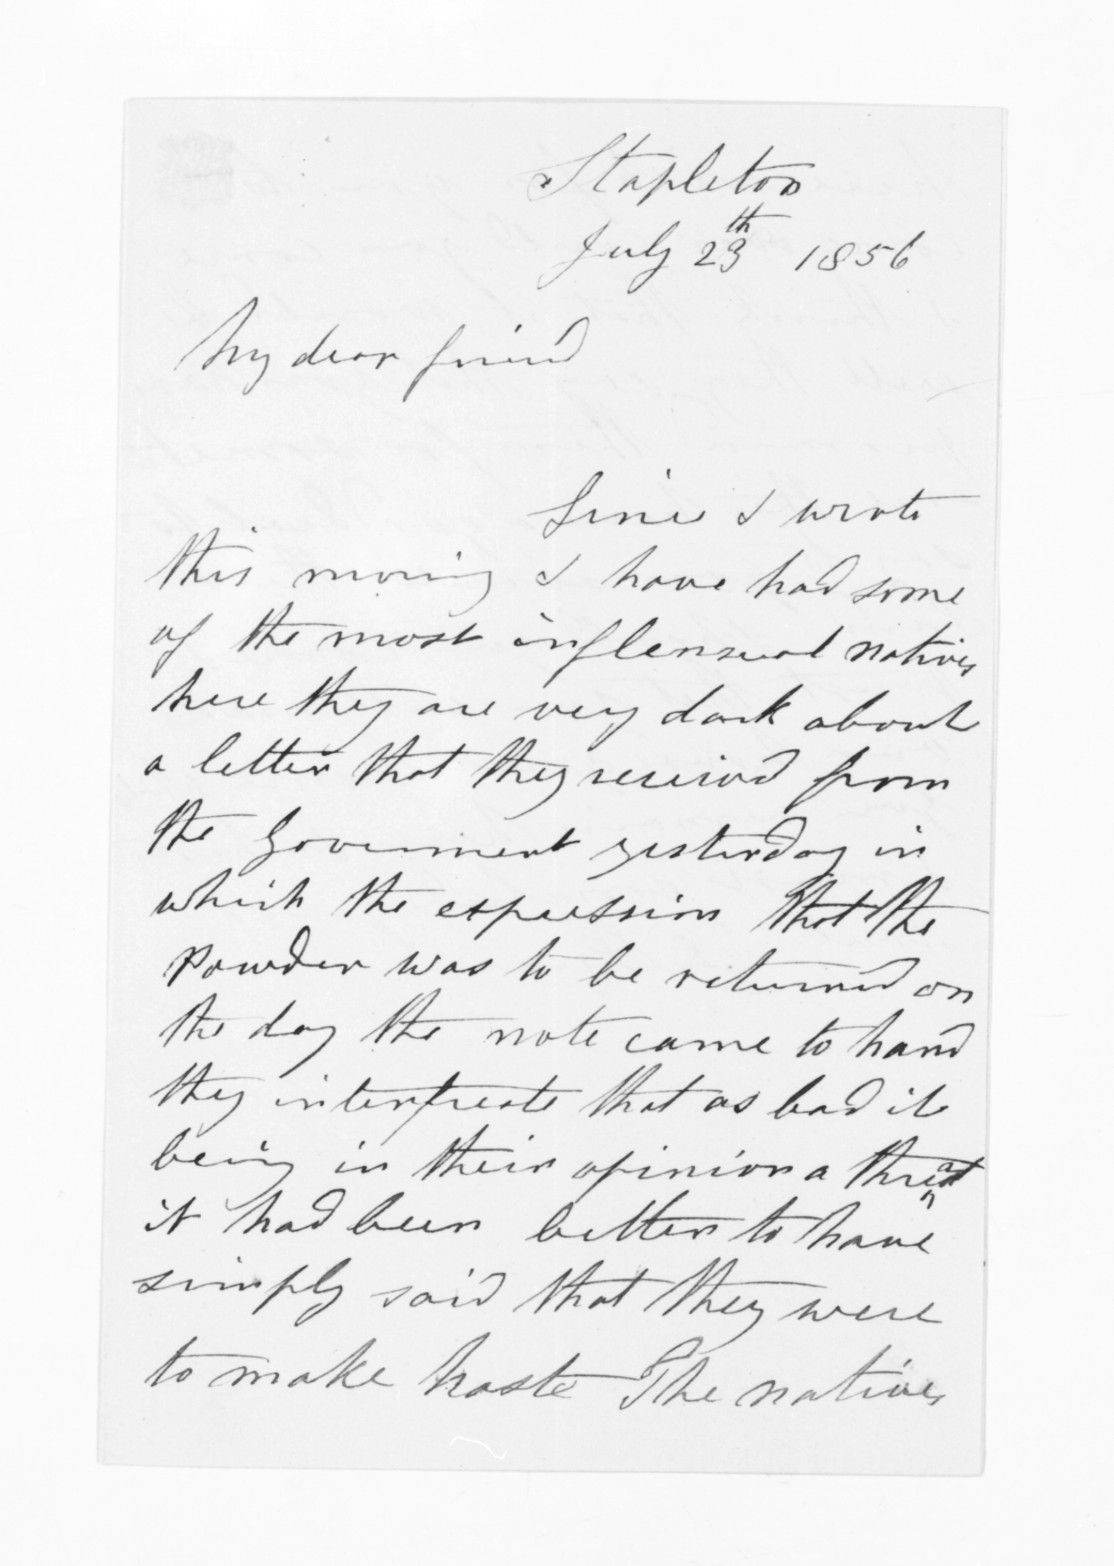 Stapleton
July 29th 1856
My dear friend
Since I wrote
this moring I have had some
of the most inflensual natives
here they are very dark about
a letter that they receivd from
the Goverment yesterday in
which the expression that the
Powder was to be returned on
the day the note came to hand
they interpreate that as bad it
being in their opinion a threat
it had been better to have
simply said that they were
to make haste The natives